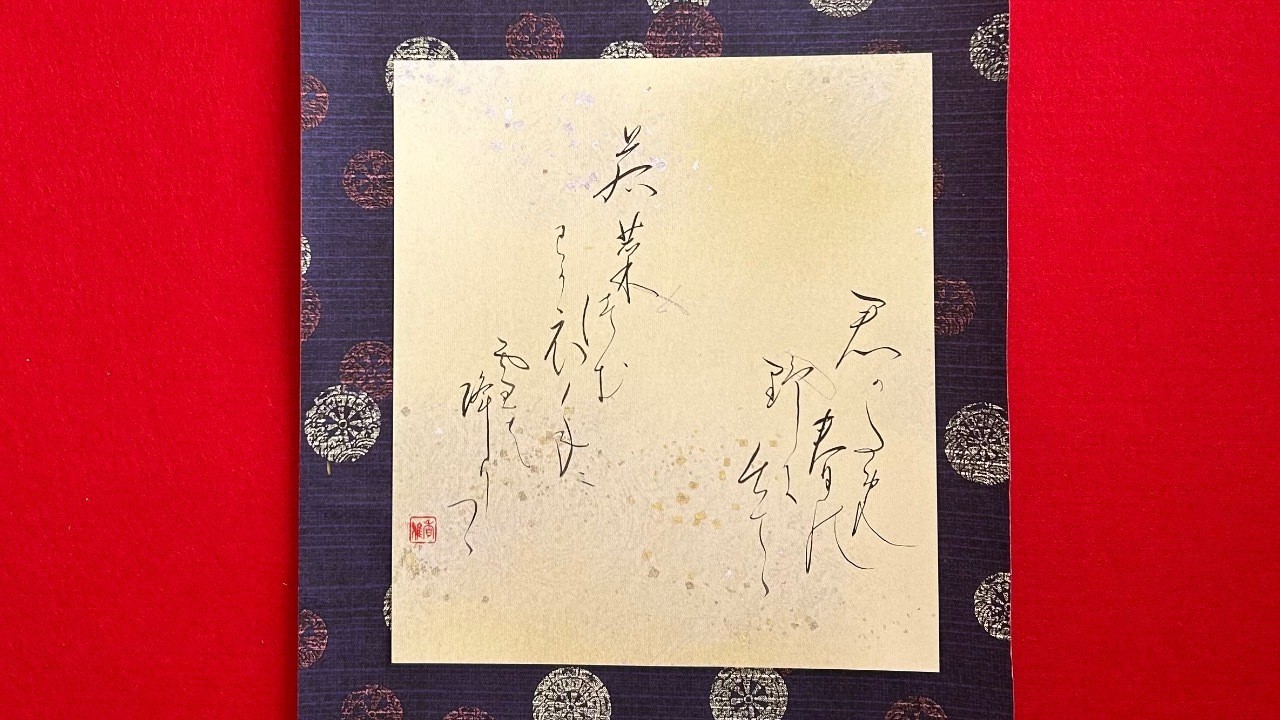 君かため
春の
野に
出てゝ
若菜
つむ
わか衣手ニ
雪は
降りつゝ